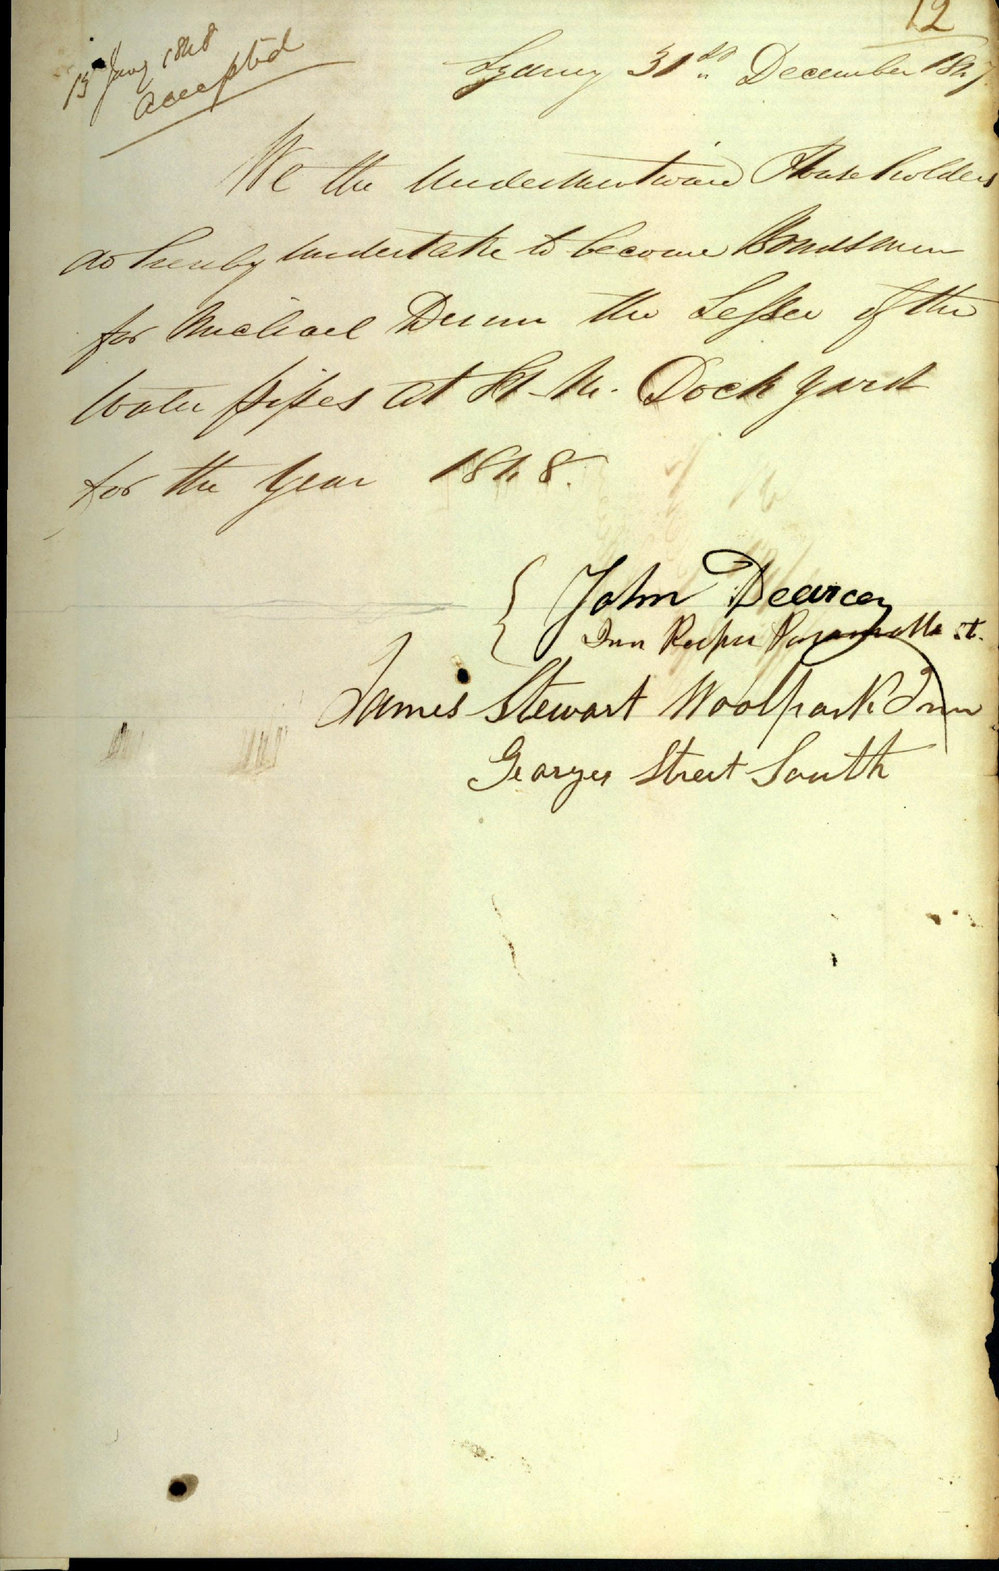 12
13 Jany 1848
accepted
Sydney 31st December 1847
We the Undermentioned Householders
do hereby undertake to become Bondsmen
for Michael Dunn the Lessee of the
Water pipes at H. M. Dock yard
for the Year 1848.
John Dearcey
Inn Keeper Parramatta St.
James Stewart Woolpack Inn
Georges Street South